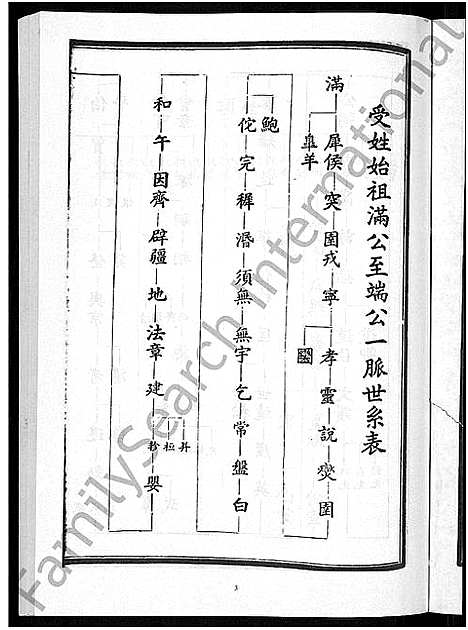 受姓始祖滿公至端公一脈世系表
滿 犀侯 突 圉戎 寧 孝 靈 說 燮 圉
皐羊
鮑
佗 完 穉 湣 須無 無宇 乞 常 盤 白
和 午 因齊 辟疆 地 法章 建 嬰
昇
桓
軫
3
FamilySearch International